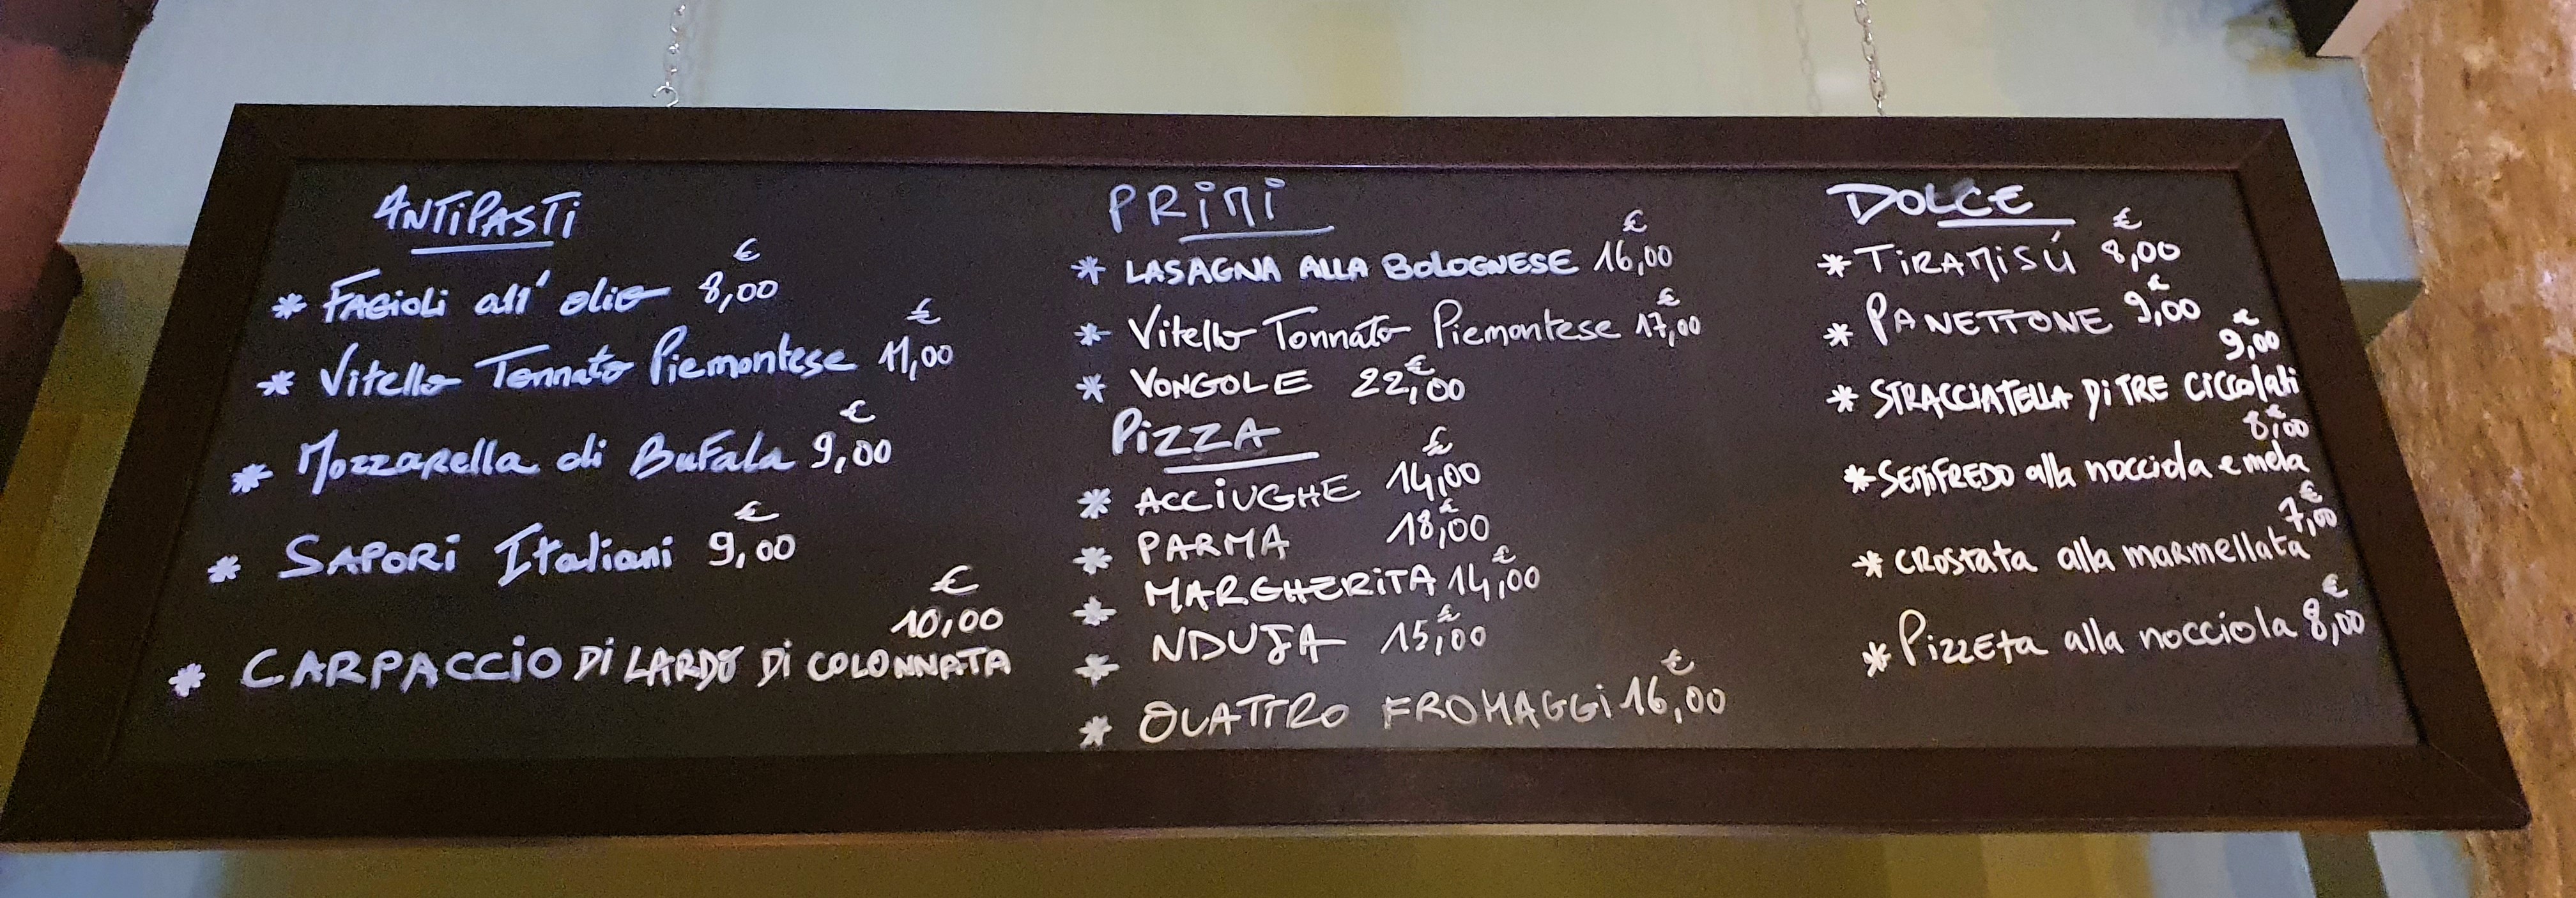 ANTIPASTI
* FAGIOLI all' olio 8,00 €
* Vitello Tonnato Piemontese 11,00 €
* Mozzarella di Bufala 9,00 €
* SAPORi Italiani 9,00 €
€
10,00
* CARPACCIO Di LARDO Di COLONNATA
PRIMI
* LASAGNA ALLA BOLOGNESE 16,00 €
* Vitello Tonnato Piemontese 17,00 €
* VONGOLE 22,00 €
PiZZA
* ACCIUGHE 14,00 €
* PARMA 18,00 €
* MARGHERITA 14,00 €
* NDUJA 15,00 €
* QUATTRO FROMAGGi 16,00 €
DOLCE
* TIRAMISÚ 8,00 €
* PANETTONE 9,00 €
9,00 €
* STRACCIATELLA Di TRE Ciccolati
8,00 €
* SEMIFREDO alla nocciola e mela
7,00 €
* CROStata alla marmellata
* PizzEta alla nocciola 8,00 €